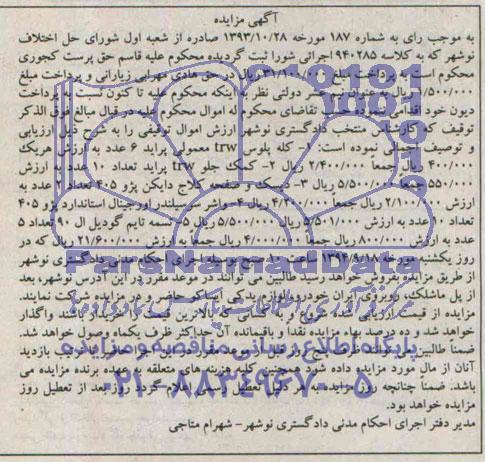 آگهی مزایده
به موجب رای به شماره ۱۸۷ مورخه ۱۳۹۳/۱۰/۲۸ صادره از شعبه اول شورای حل اختلاف
نوشهر که به کلاسه ۹۴۰۲۸۵ اجرائی شورا ثبت گردیده محکوم علیه قاسم حق پرست کجوری
محکوم است به پرداخت مبلغ ریال در حق هادی مهرابی زیارانی و پرداخت مبلغ
ریال به عنوان نیم عشر دولتی نظر به اینکه محکوم علیه تا کنون نسبت به پرداخت
دیون خود اقدامی تقاضای محکوم له اموال محکوم علیه در قبال مبالغ فوق الذکر
توقیف که کارشناس منتخب دادگستری نوشهر ارزش اموال توقیفی را به شرح ذیل ارزیابی
و توصیف اجمالی نموده است: ۱- کله پلوس trw معمولی پراید ۶ عدد به ارزش هریک
۴۰۰/۰۰۰ ریال جمعاً ۲/۴۰۰/۰۰۰ ریال ۲- کمک جلو trw پراید تعداد ۱۰ عدد به ارزش
۵۵۰/۰۰۰ جمعاً ۵/۵۰۰/۰۰۰ ریال ۳- دیسک و صفحه کلاج دایکن پژو ۴۰۵ تعداد ۲ عدد به
ارزش ۲/۱۰۰/۰۰۰ ریال جمعاً ۴/۲۰۰/۰۰۰ ریال ۴- واشر سرسیلندر اورجینال استاندارد پژو ۴۰۵
تعداد ۱۰ عدد به ارزش ریال ۵/۵۰۰/۰۰۰ ریال ۵- تسمه تایم گودیل ال ۹۰ تعداد ۵
عدد به ارزش ۸۰۰/۰۰۰ ریال جمعاً ۴/۰۰۰/۰۰۰ ریال جمعاً به ارزش ۲۱/۶۰۰/۰۰۰ ریال که در
روز یکشنبه مورخه ۱۳۹۴/۹/۱۸ ساعت ۱۰ صبح بوسیله اجرای احکام مدنی دادگستری نوشهر
از طریق مزایده بفروش خواهد رسید طالبین می توانند در موعد مقرر در این آدرس نوشهر، بعد
از پل ماشلک، روبروی ایران خودرو، لوازم یدکی ایساکو حاضر و در مزایده شرکت نمایند.
مزایده از قیمت ارزیابی شده شروع و به کسانی که بالاترین قیمت را خریدار باشند واگذار
خواهد شد و ده درصد بهاء مزایده نقدا و باقیمانده آن حداکثر ظرف یکماه وصول خواهد شد.
ضمناً طالبین می توانند ظرف پنج روز قبل از موعد مقرر در این اجرا حاضر تا ترتیب بازدید
آنان از مال مورد مزایده داده شود همچنین کلیه هزینه های متعلقه به عهده برنده مزایده می
باشد. ضمناً چنانچه روز مزایده به هر دلیل تعطیل رسمی اعلام گردد روز بعد از تعطیل روز
مزایده خواهد بود.
مدیر دفتر اجرای احکام مدنی دادگستری نوشهر- شهرام متاجی
ParsNamadData
پایگاه اطلاع رسانی مناقصه و مزایده
۰۲۱-۸۸۳۴۹۶۷۰-۵